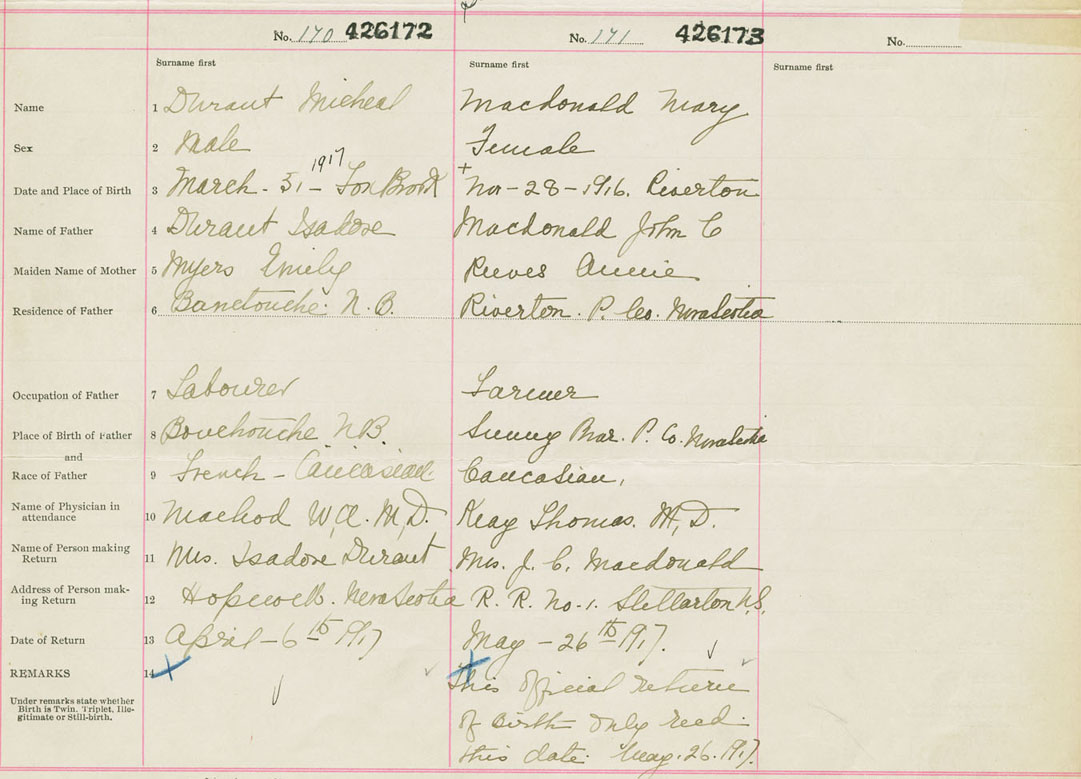 No. 170 426172 No. 171 426173 No.
Surname first Surname first Surname first
Name 1 Durant Micheal Macdonald Mary
Sex 2 Male Female
1917 +
Date and Place of Birth 3 March - 31 - Fox Brook Nov - 28 - 1916. Riverton
Name of Father 4 Durant Isadore Macdonald John C
Maiden Name of Mother 5 Myers Emily Reeves Annie
Residence of Father 6 Banctouche N. B. Riverton. P. Co. Nova Scotia
Occupation of Father 7 Labourer Farmer
Place of Birth of Father 8 Bouchouche N.B. Sunny Brae. P. Co. Nova Scotia
and
Race of Father 9 French - Caucasian. Caucasian,
Name of Physician in
attendance 10 Macleod W. A. M, D. Keay Thomas. M, D.
Name of Person making
Return 11 Mrs. Isadore Durant Mrs. J. C. Macdonald
Address of Person mak-
ing Return 12 Hopewell. Nova Scotia R. R. No. 1. Stellarton N.S.
Date of Return 13 April - 6th 1917 May - 26th 1917.
REMARKS 14 This official return
Under remarks state whether
Birth is Twin, Triplet, Ille-
gitimate or Still-birth.
of birth only recd.
this date. May. 26. 1917.